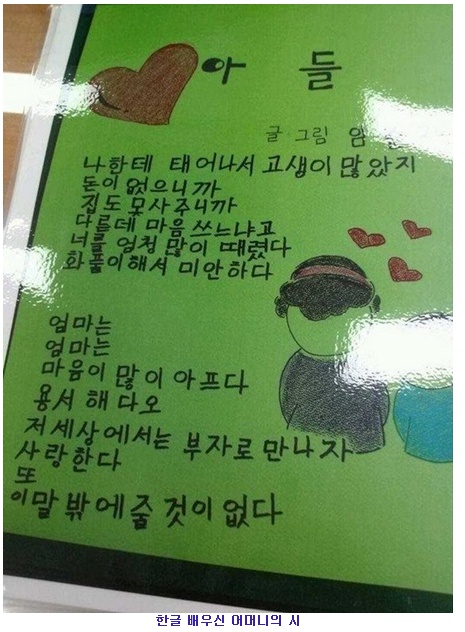 아 들
글·그림 임
나한테 태어나서 고생이 많았지
돈이 없으니까
집도 못사주니까
다른데 마음 쓰느냐고
너를 엄청 많이 때렸다
화풀이해서 미안하다
엄마는
엄마는
마음이 많이 아프다
용서 해 다오
저 세상에서는 부자로 만나자
사랑한다
또
이말 밖에 줄 것이 없다
한글 배우신 어머니의 시